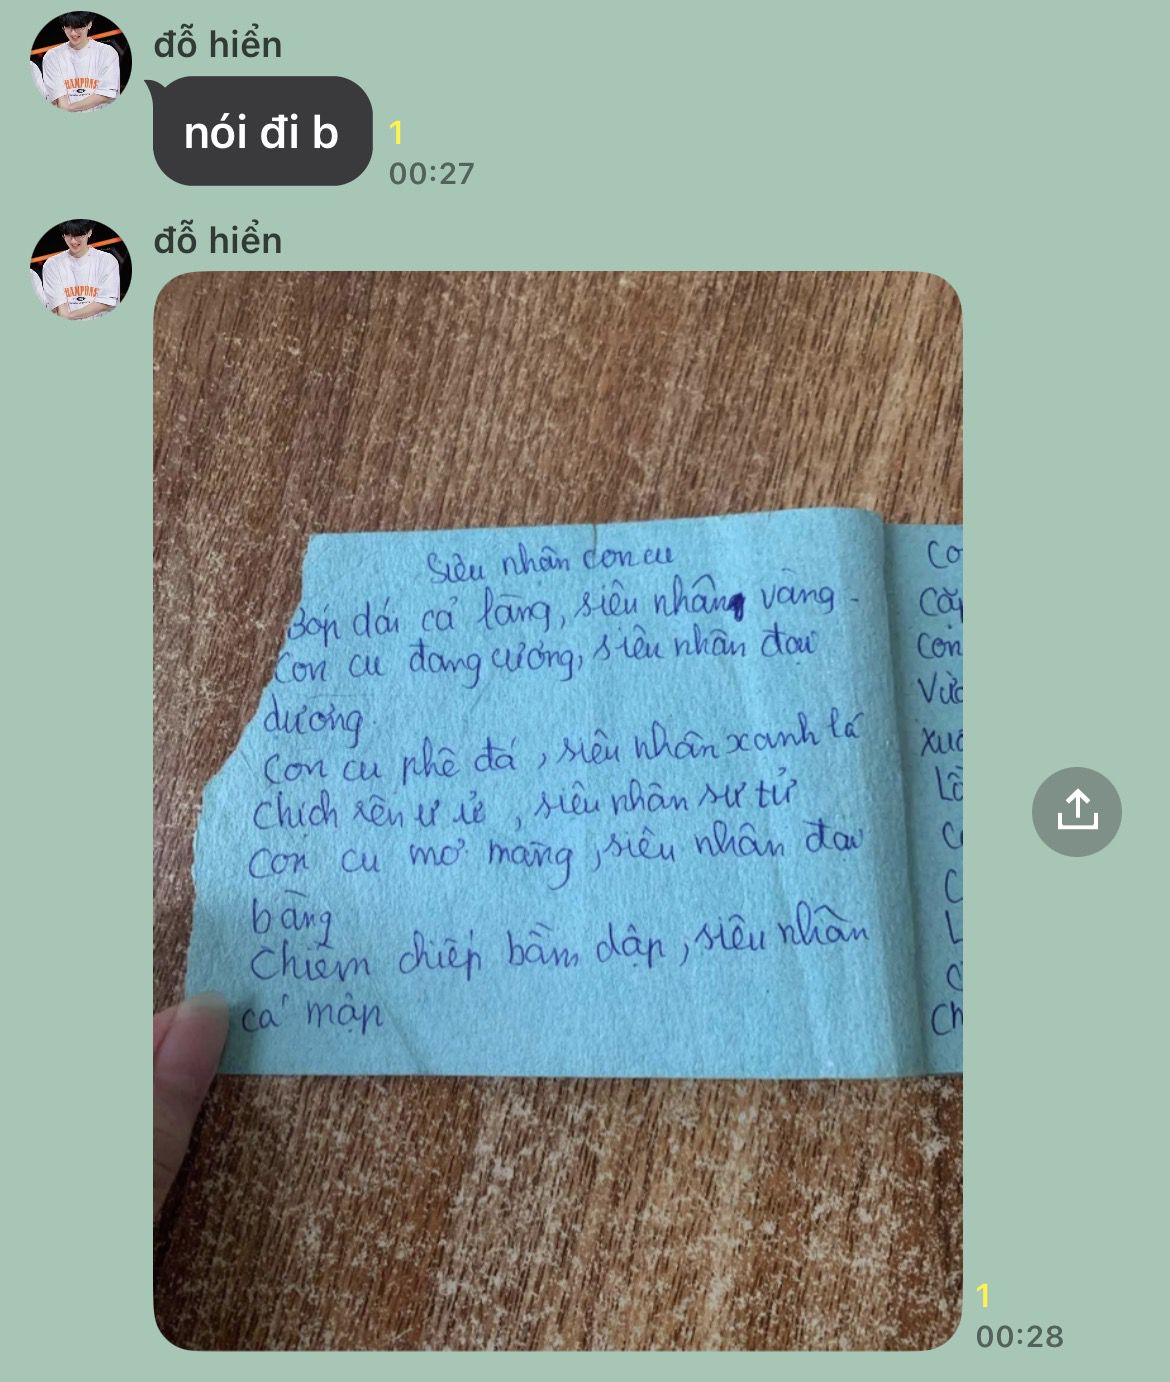 đỗ hiển
nói đi b
1
00:27
đỗ hiển
Siêu nhân con cu
Bóp dái cả làng, siêu nhân vàng
Con cu đang cương, siêu nhân đại
dương
Con cu phê đá, siêu nhân xanh lá
Chịch rên ư ử, siêu nhân sư tử
Con cu mơ màng, siêu nhân đại
bàng
Chiêm chiếp bầm dập, siêu nhân
cá mập
1
00:28